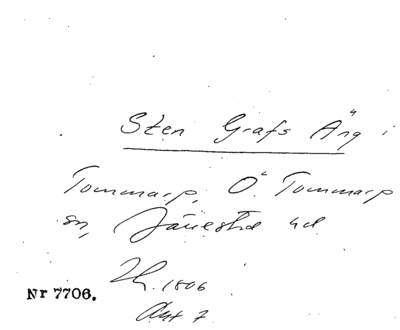 Sten Grafs Äng i
Tommarp, Ö Tommarp
sn, Järrestad hd
1806
Nr 7706.
Akt 7